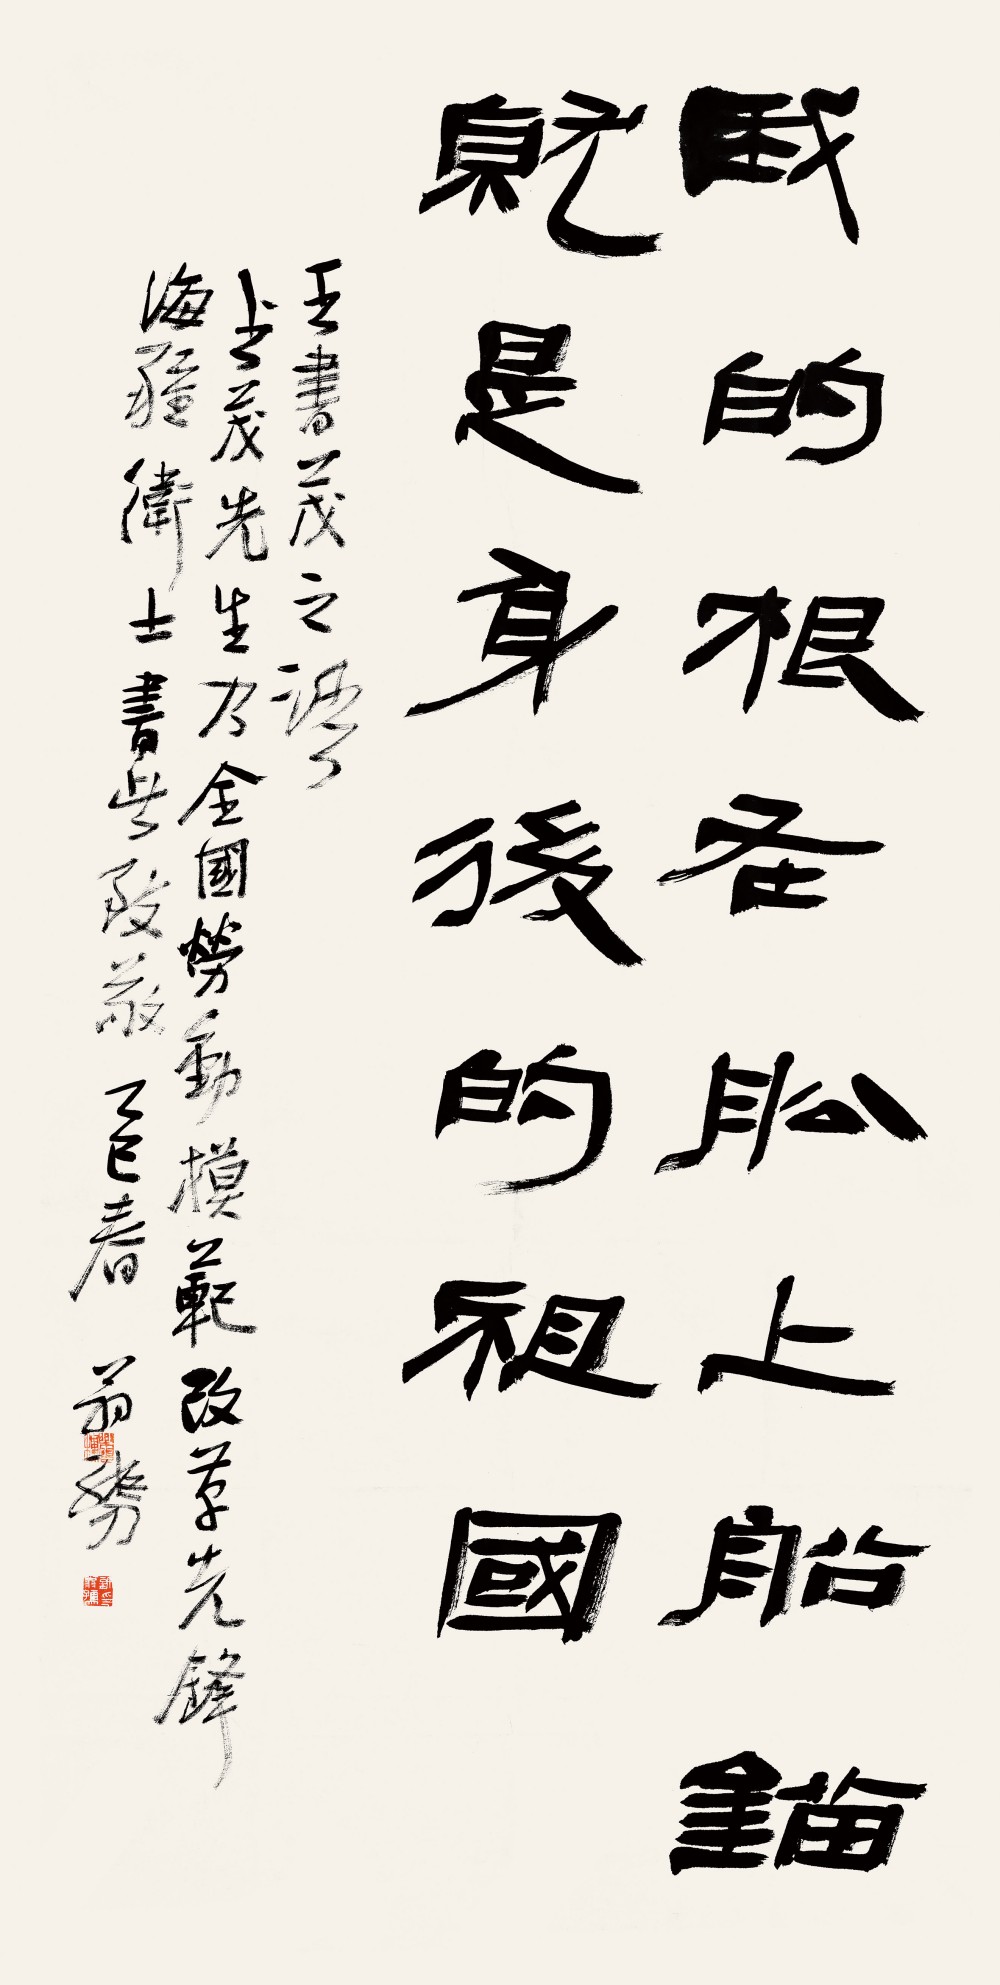 我的根在舩上船錨
就是身後的祖國
王書茂之語
書茂先生乃全國勞動模範改革先鋒
海疆衛士書此致敬乙巳春